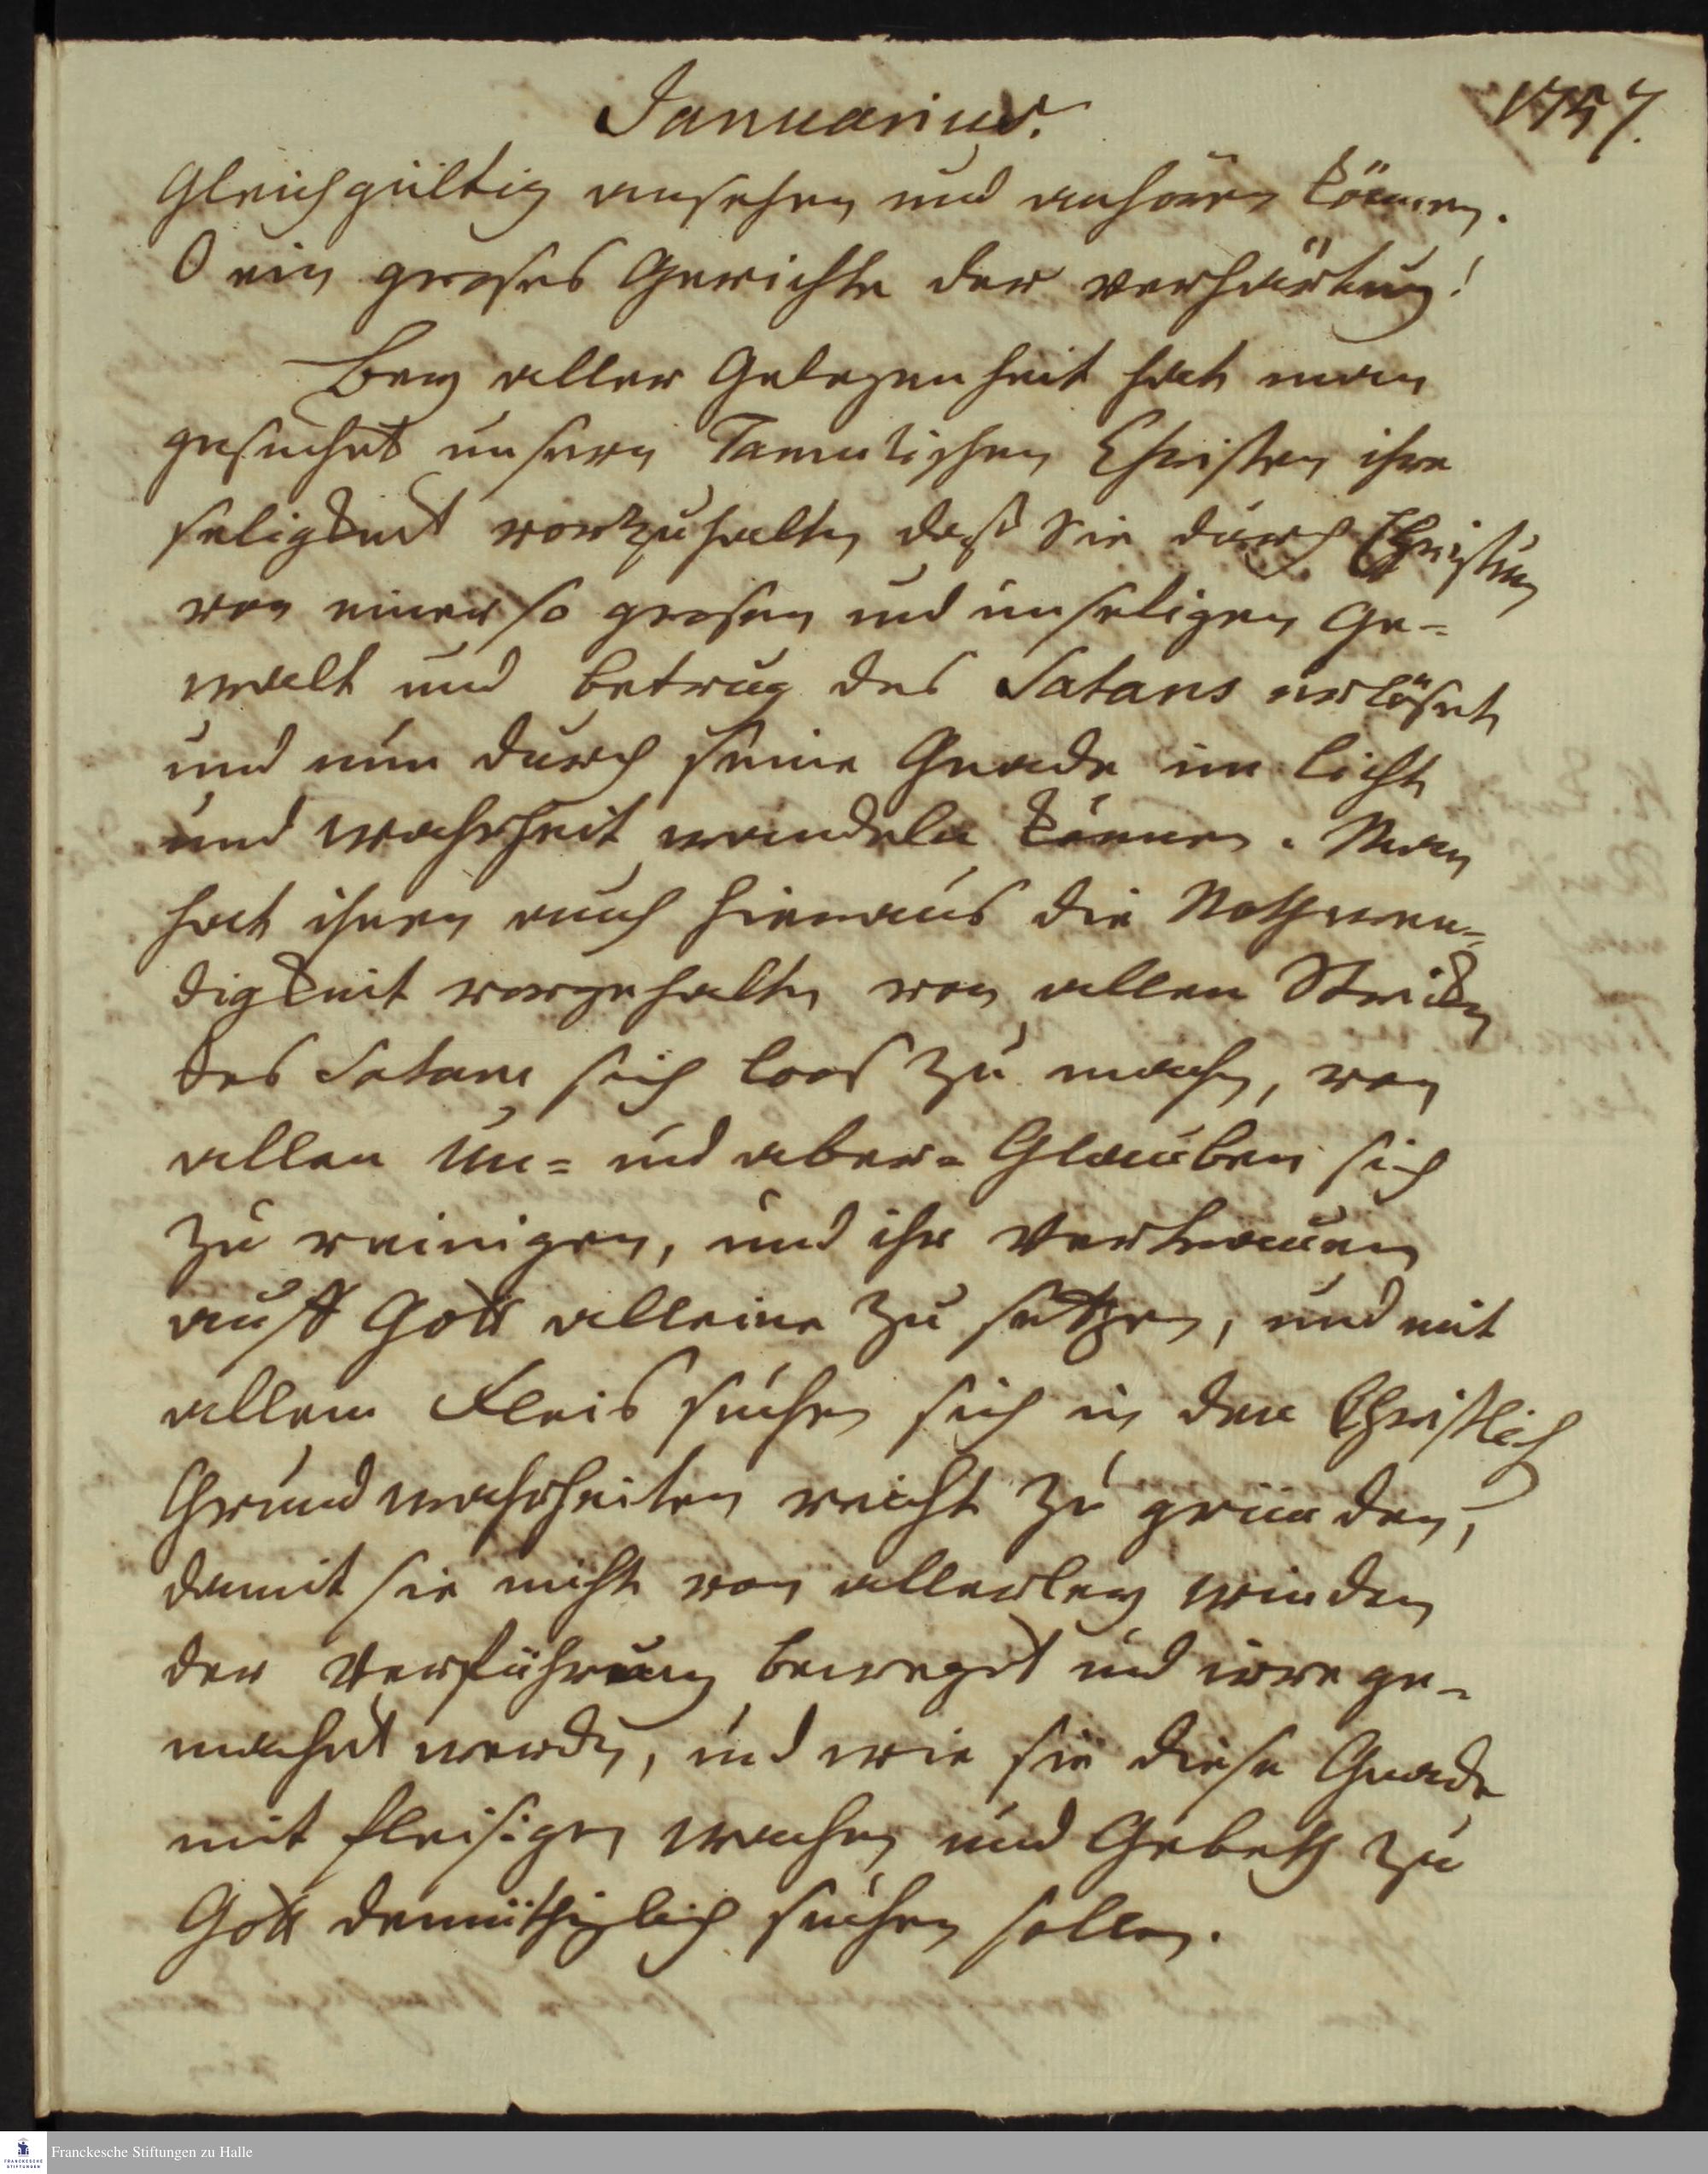 Januarius.
1757.
Gleichgültig ansehen und anhören können.
O ein groses Gerichte der verhärtung!
Bey aller Gelegenheit hat man
gesuchet unsern Tamulischen Christen ihre
seligkeit vorzuhalten, daß Sie durch Christum
von einer so grosen und unseligen Ge=
walt und betrug des Satans erlöset
und nun durch seine Gnade im licht
und wahrheit wandeln können. Man
hat ihnen auch hieraus die Nothwen=
digkeit vorgehalten von allen Stricken
des Satans sich loos zu machen, von
allen Un= und aber= Glauben sich
zu reinigen, und ihr vertrauen
auff Gott alleine zu setzen, und mit
allem Fleis suchen sich in den Christlich
Grundwahrheiten recht zu gründen,
damit sie nicht von allerley winden
der verführung beweget und irre ge=
machet werden, und wie sie diese Gnade
mit fleisigen wachen und Gebeth zu
Gott demüthiglich suchen sollen.
Franckesche Stiftungen zu Halle
FRANCKESCHE
STIFTUNGEN